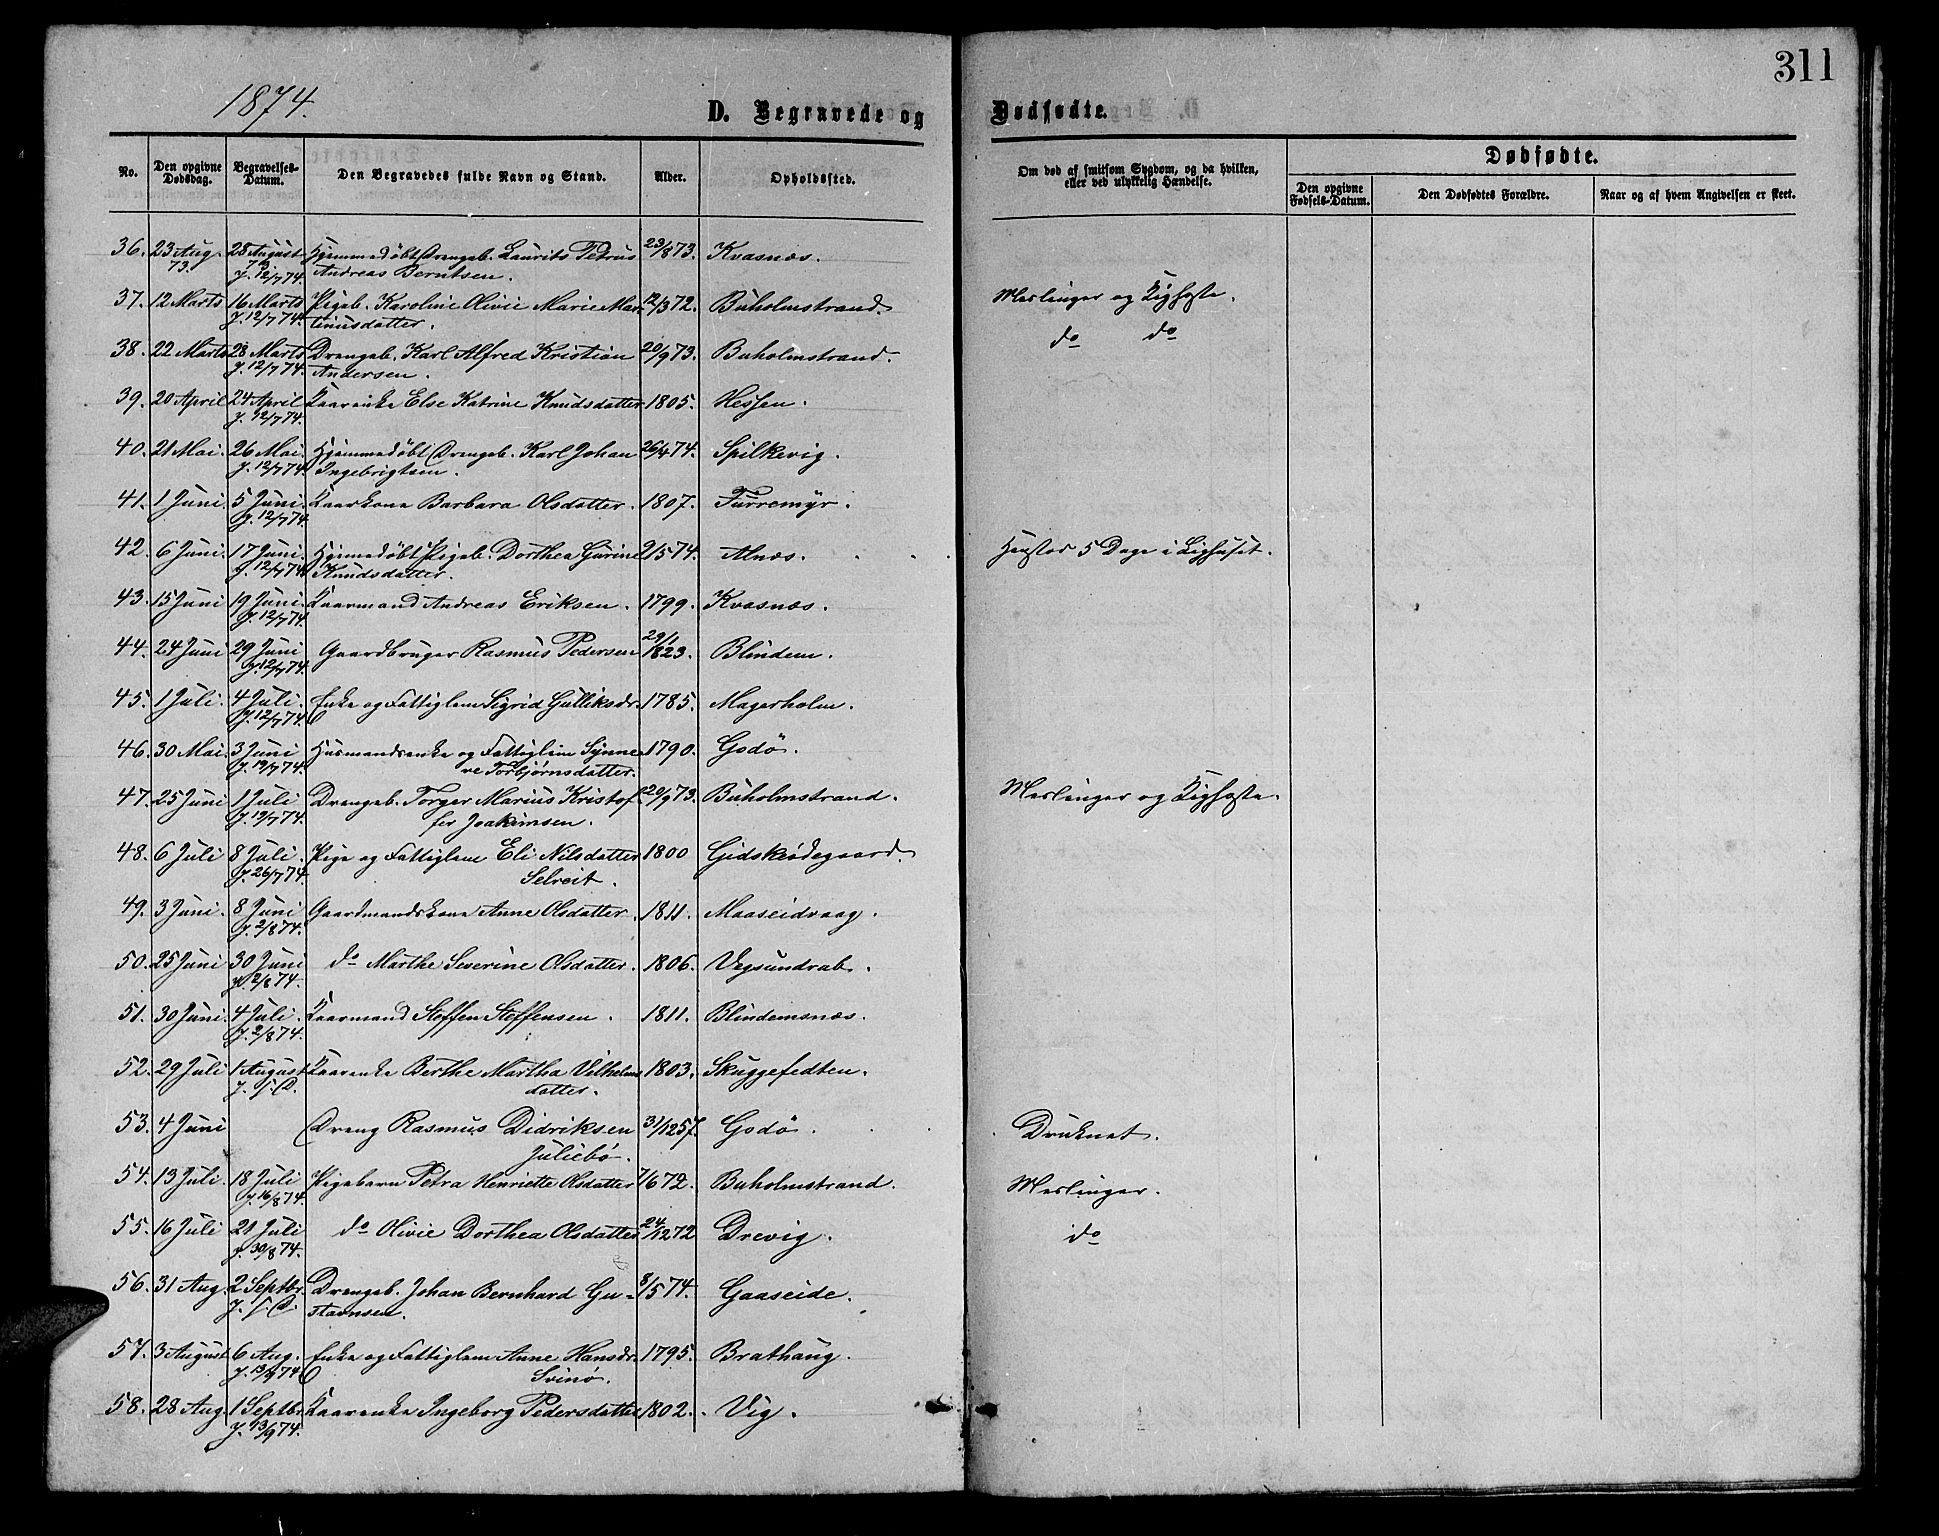 311
1874.
D. Begravede og Dødfødte.
No. Den opgivne Dødsdag. Begravelses-Datum. Den Begravedes fulde Navn og Stand. Alder. Opholdssted. Om død af smitsom Sygdom, og da hvilken, eller ved ulykkelig Hændelse. Dødfødte.
Den opgivne Fødsels-Datum. Den Dødfødtes Forældre. Naar og af hvem Angivelsen er skeet.
36. 23 Aug. 28 August Hjemmedøbt Drengeb. Laurits Petrus 23/873. Kvasnæs.
73. 73 J. 12/774. Andreas Berntsen.
37. 12 Marts 16 Marts Pigeb. Karoline Olivie Marie Mar- 12/372. Buholmstrand. Meslinger og Kighoste.
J. 12/774. tinusdatter.
38. 22 Marts 28 Marts Drengeb. Karl Alfred Kristian 20/973. Buholmstrand. do do
J. 12/774. Andersen.
39. 20 April 24 April Kaarenke Else Katrine Knudsdatter 1805. Hessen.
J. 12/774.
40. 21 Mai. 26 Mai. Hjemmedøbt Drengeb. Karl Johan 26/474. Spilkevig.
J. 12/774. Ingebrigtsen.
41. 1 Juni. 5 Juni. Kaarkone Barbara Olsdatter. 1807. Furremyr.
J. 12/774.
42. 6 Juni. 17 Juni. Hjemmedøbt Pigeb. Dorthea Gurine 2/574. Alnæs. Henstod 5 Dage i Lighuset.
J. 12/774. Knudsdatter.
43. 15 Juni 19 Juni. Kaarmand Andreas Eriksen. 1799. Kvasnæs.
J. 12/774.
44. 24 Juni 29 Juni Gaardbruger Rasmus Pedersen 29/1 1823. Blindem.
J. 12/774.
45. 1 Juli. 4 Juli. Enke og Fattiglem Sigrid Gulliksdr. 1785. Magerholm.
J. 12/774.
46. 30 Mai. 3 Juni Husmandsenke og Fattiglem Synne- 1790. Godø.
J. 19/774. ve Torbjørnsdatter.
47. 25 Juni 1 Juli Drengeb. Torger Marius Kristof- 20/973. Buholmstrand. Meslinger og Kighoste.
J. 19/774. fer Joakimsen.
48. 6 Juli 8 Juli. Pige og Fattiglem Eli Nilsdatter 1800 Gidskeødegaard.
J. 26/774. Selveit.
49. 3 Juni. 8 Juni Gaardmandskone Anne Olsdatter. 1811. Maaseidvaag.
J. 2/874.
50. 25 Juni 30 Juni do Marthe Severine Olsdatter. 1806. Vegsundrab.
J. 2/874.
51. 30 Juni. 4 Juli. Kaarmand Steffen Steffensen. 1811. Blindemsnæs.
J. 2/874.
52. 29 Juli 1 August Kaarenke Berthe Martha Vilhelms 1803. Skuggefedten.
J. s. D. datter.
53. 4 Juni Dreng Rasmus Didriksen 31/1257. Godø. Druknet.
Juliebø.
54. 13 Juli. 18 Juli Pigebarn Petra Henriette Olsdatter 7/672. Buholmstrand. Meslinger.
J. 16/874.
55. 16 Juli 21 Juli do Olivie Dorthea Olsdatter 24/1272 Drevig. do
J. 30/874.
56. 31 Aug. 2 Septbr. Drengeb. Johan Bernhard Gu- 8/574. Gaaseide.
J. s. D. stavnsen.
57. 3 August 6 Aug. Enke og Fattiglem Anne Hansdr. 1795. Brathaug.
J. 13/974 Svinø.
58. 28 Aug. 1 Septbr. Kaarenke Ingeborg Pedersdatter 1802. Vig.
J. 13/974.